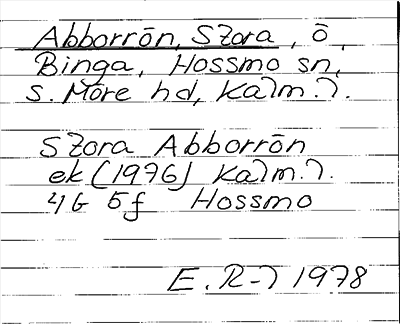 Abborrön, Stora, ö,
Binga, Hossmo sn,
S. Möre hd, Kalm. l.
Stora Abborrön
ek (1976) Kalm. l.
4G 5f Hossmo
E. R-l 1978